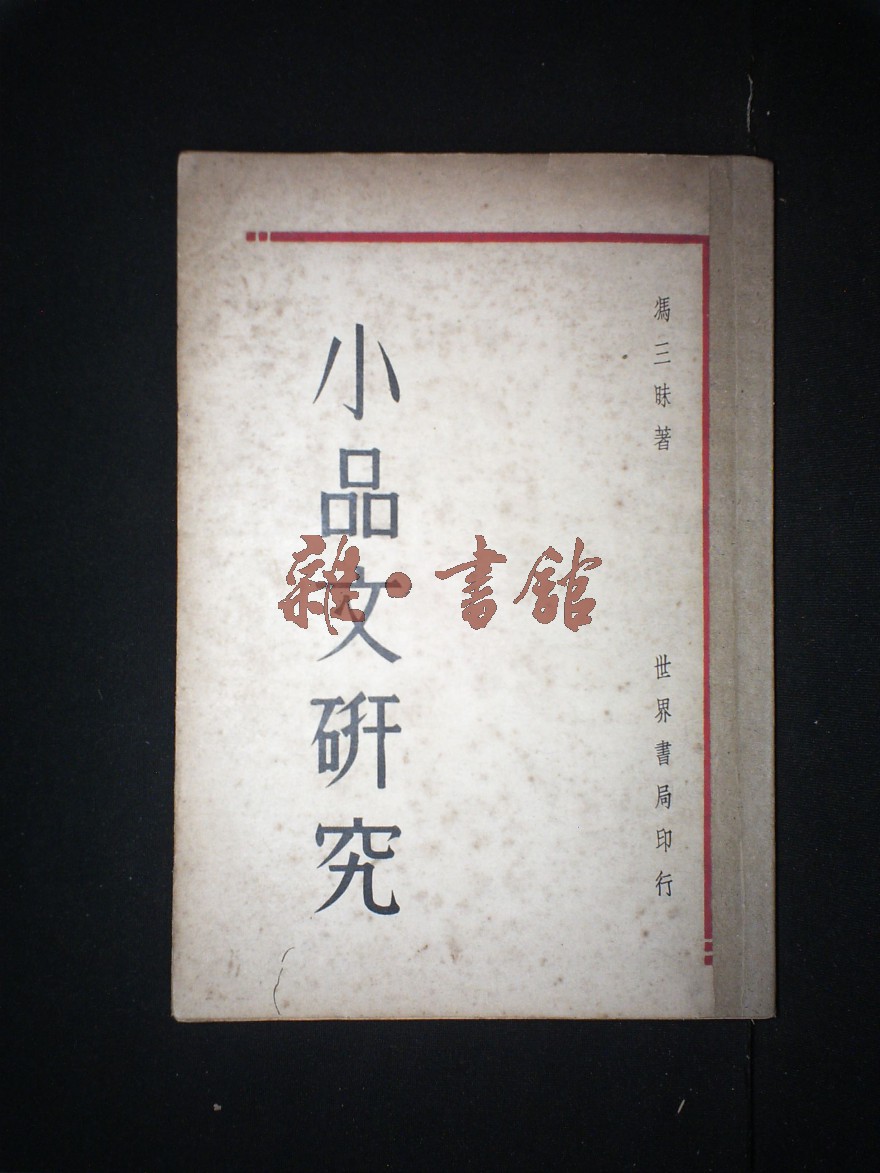 馮三昧著
世界書局印行
小品文研究
雜·書館